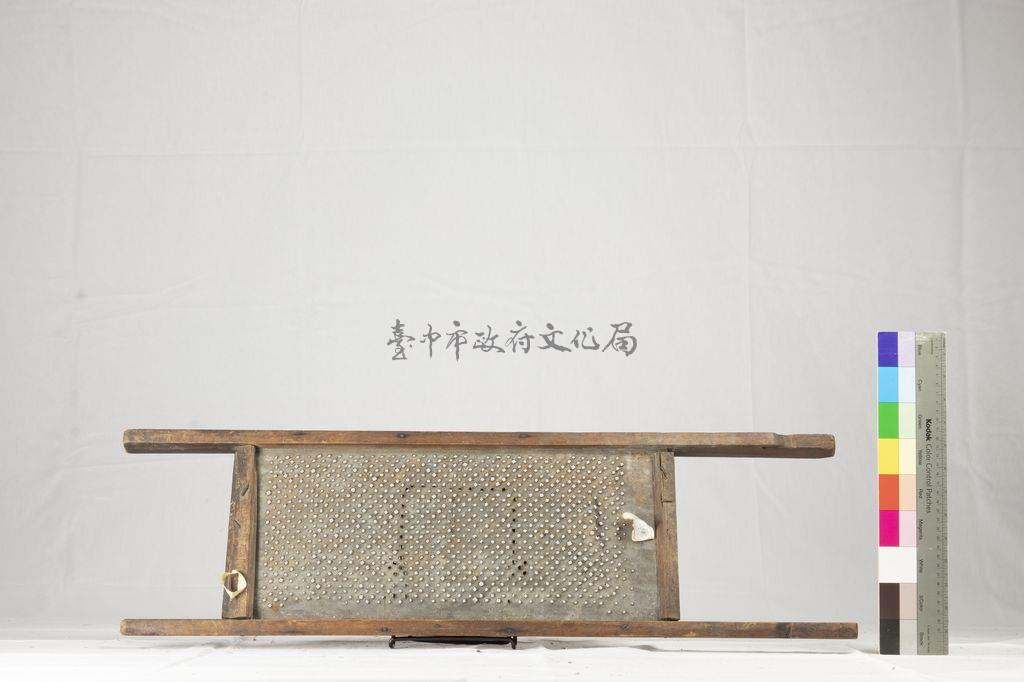 臺中市政府文化局
Kodak Color Control Patches
Blue
Cyan
Green
Yellow
Red
Magenta
White
3/Color
Black